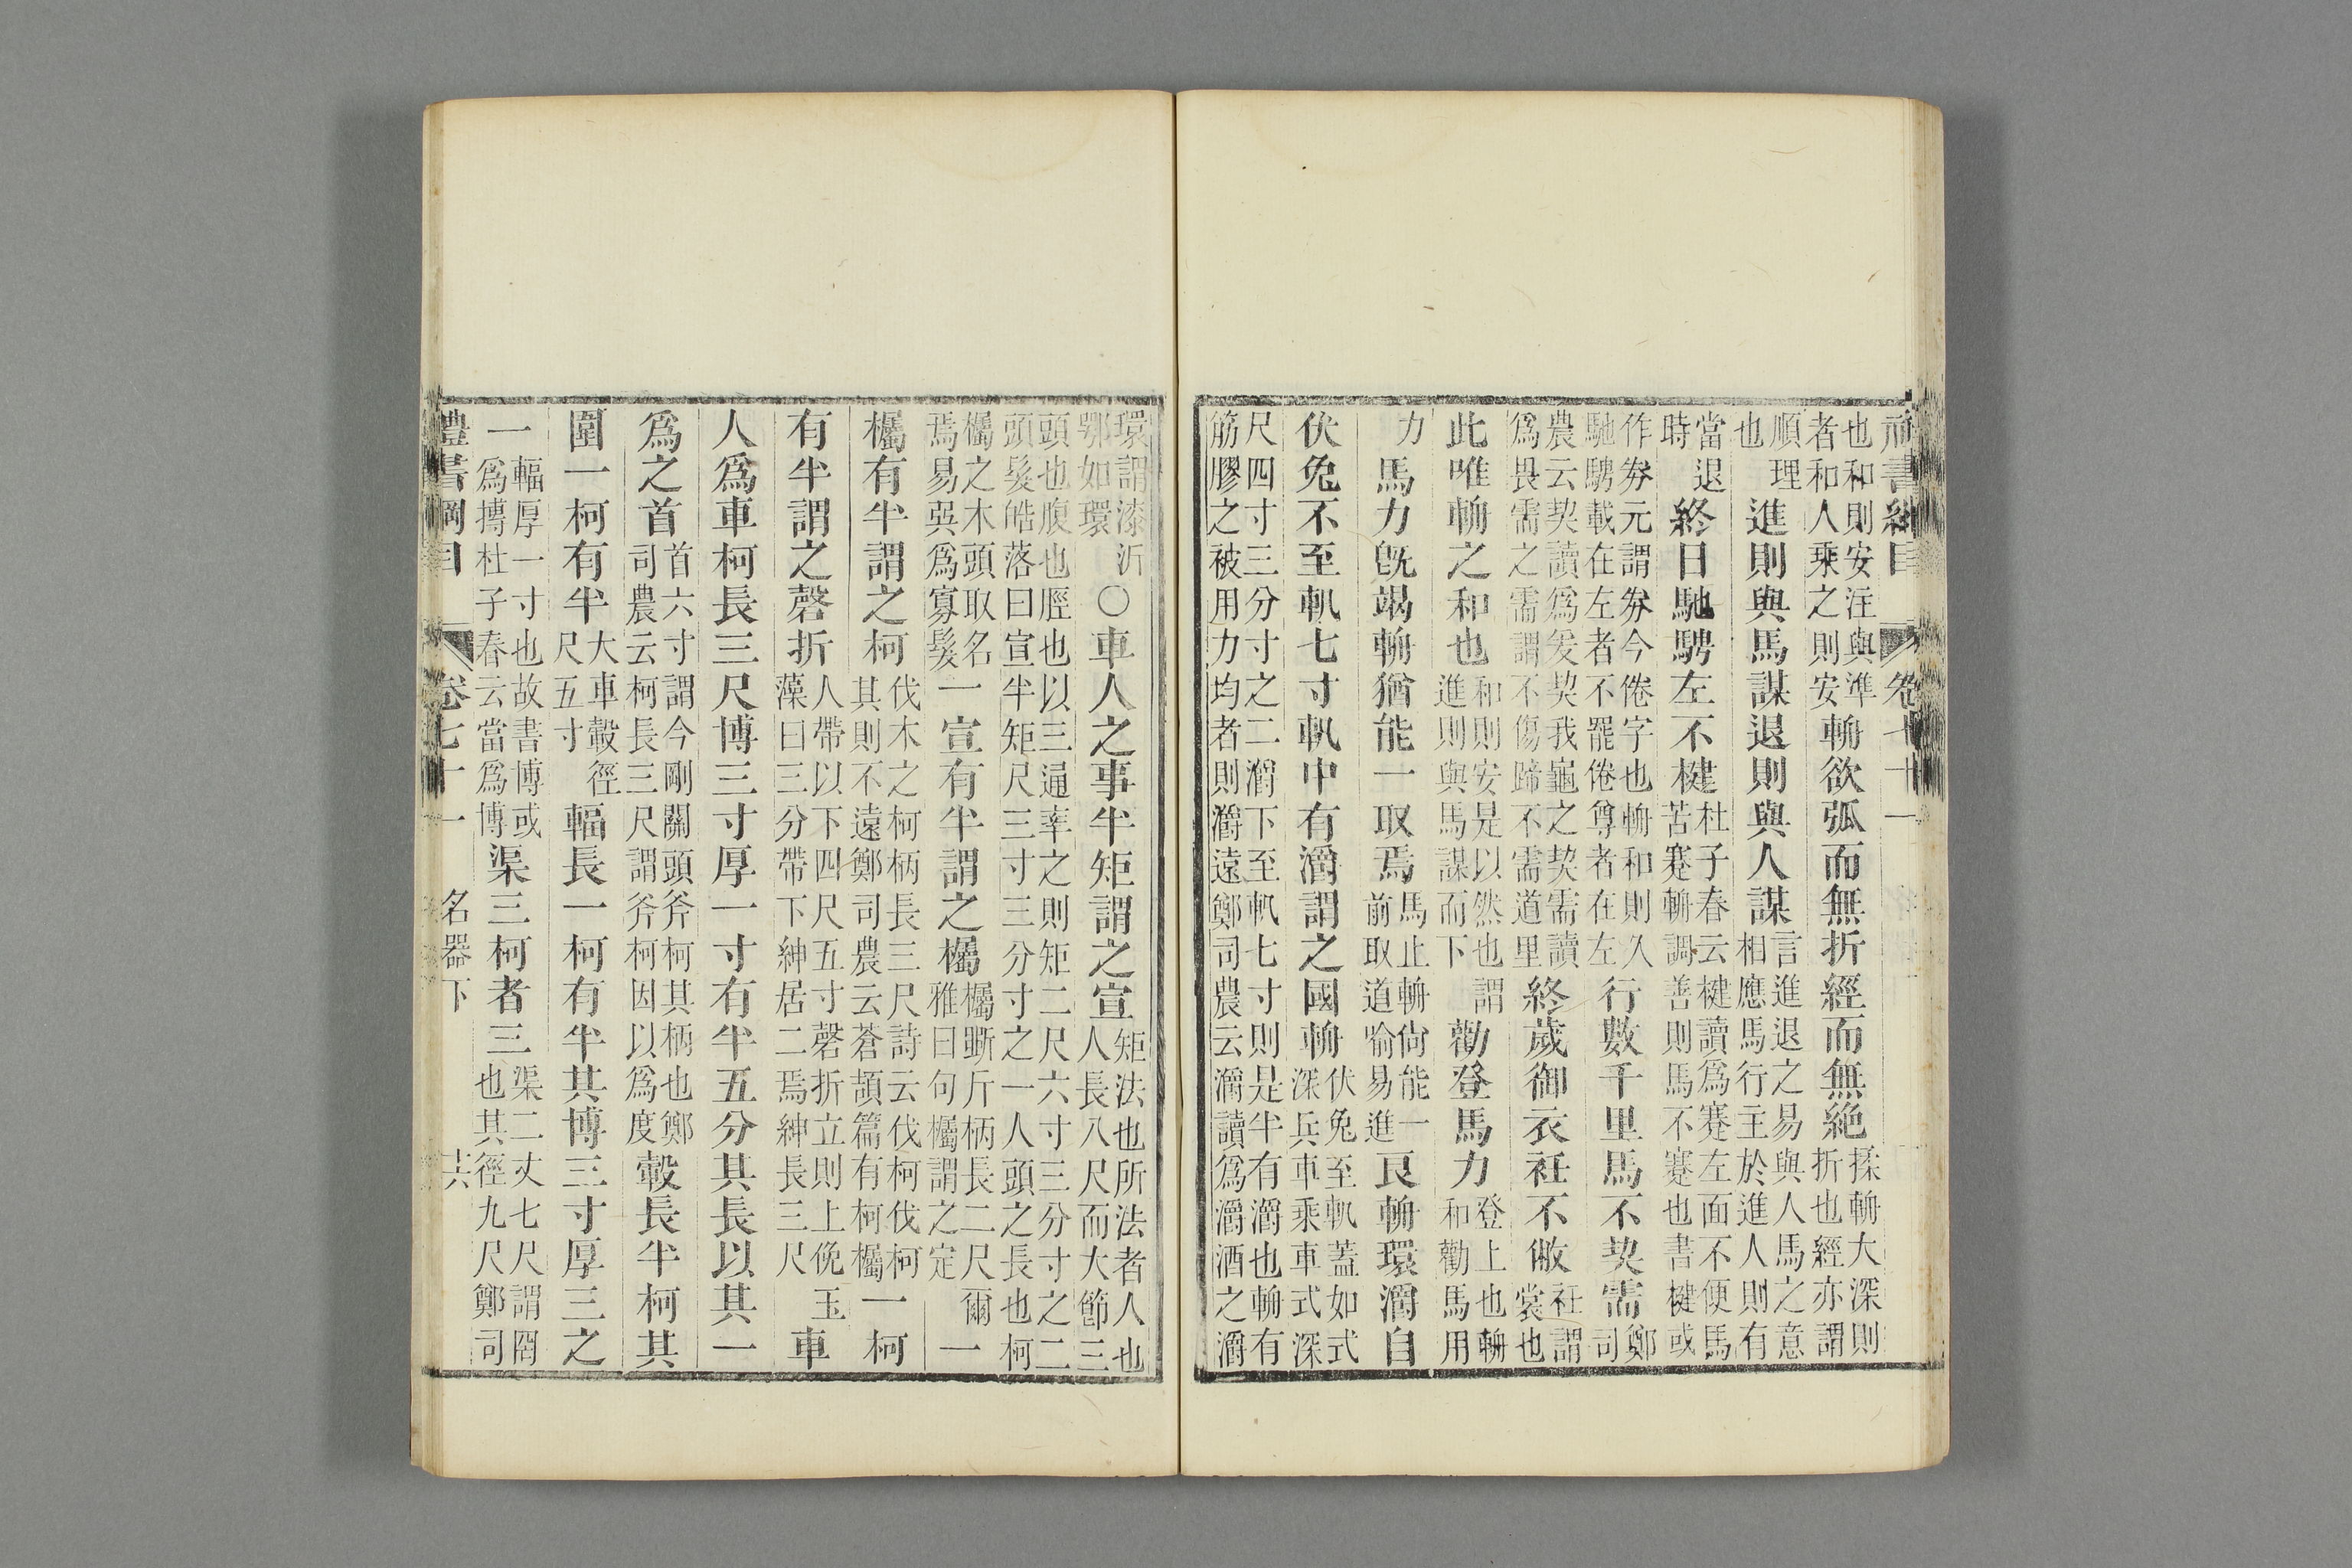 禮書綱目　卷七十一
也和則安注與準者和人乘之則安輈欲弧而無折經而無絕揉輈大深則折也經亦謂
順理也進則與馬謀退則與人謀言進退之易與人馬之意相應馬行主於進人則有
當退時終日馳騁左不楗杜子春云楗讀爲蹇左面不便馬苦蹇輈調善則馬不蹇也書楗或
作券元謂券今倦字也輈和則久馳騁載在左者不罷倦尊者在左行數千里馬不契需鄭司
農云契讀爲爰契我龜之契需讀爲畏需之需謂不傷蹄不需道里終歲御衣衽不敝衽謂裳也
此唯輈之和也和則安是以然也謂進則與馬謀而下勸登馬力登上也輈和勸馬用
力馬力旣竭輈猶能一取焉馬止輈尚能一前取道喻易進良輈環灂自
伏兔不至軓七寸軓中有灂謂之國輈伏兔至軓蓋如式深兵車乘車式深
尺四寸三分寸之二灂下至軓七寸則是半有灂也輈有筋膠之被用力均者則灂遠鄭司農云灂讀爲灂酒之灂
環謂漆沂鄂如環○車人之事半矩謂之宣矩法也所法者人也人長八尺而大節三
頭也腹也脛也以三通率之則矩二尺六寸三分寸之二頭髮皓落曰宣半矩尺三寸三分寸之一人頭之長也柯
欘之木頭取名焉易巽爲寡髮一宣有半謂之欘欘斲斤柄長二尺爾雅曰句欘謂之定一
欘有半謂之柯伐木之柯柄長三尺詩云伐柯伐柯其則不遠鄭司農云蒼頡篇有柯欘一柯
有半謂之磬折人帶以下四尺五寸磬折立則上俛玉藻曰三分帶下紳居二焉紳長三尺車
人爲車柯長三尺博三寸厚一寸有半五分其長以其一
爲之首首六寸謂今剛關頭斧柯其柄也鄭司農云柯長三尺謂斧柯因以爲度轂長半柯其
圍一柯有半大車轂徑尺五寸輻長一柯有半其博三寸厚三之
一輻厚一寸也故書博或爲摶杜子春云當爲博渠三柯者三渠二丈七尺謂罔也其徑九尺鄭司
禮書綱目　卷七十一　名器下　十六